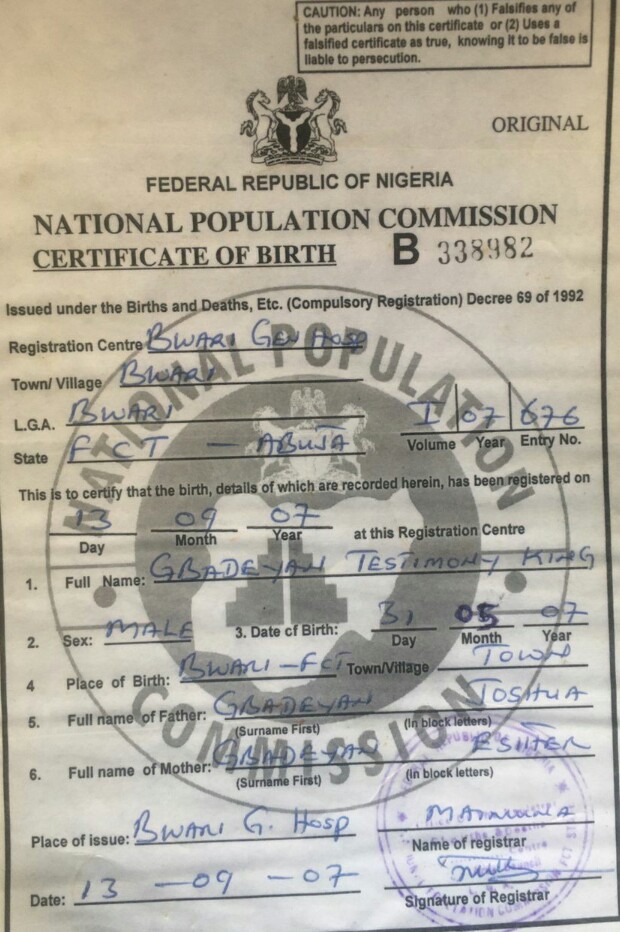 CAUTION: Any person who (1) Falsifies any of
the particulars on this certificate or (2) Uses a
falsified certificate as true, knowing it to be false is
liable to persecution.
ORIGINAL
FEDERAL REPUBLIC OF NIGERIA
NATIONAL POPULATION COMMISSION
CERTIFICATE OF BIRTH B 338982
Issued under the Births and Deaths, Etc. (Compulsory Registration) Decree 69 of 1992
Registration Centre BWARI GEN HOSP
Town/ Village BWARI
L.G.A. BWARI
I 07 676
State FCT - ABUJA
Volume Year Entry No.
This is to certify that the birth, details of which are recorded herein, has been registered on
13 09 07 at this Registration Centre
Day Month Year
1. Full Name: GBADEYAN TESTIMONY KING
2. Sex: MALE 3. Date of Birth: 31 05 07
Day Month Year
4 Place of Birth: BWARI-FCT Town/Village TOWN
5. Full name of Father: GBADEYAN JOSHUA
(Surname First) (In block letters)
6. Full name of Mother: GBADEYAN ESTHER
(Surname First) (In block letters)
Place of issue: BWARI G. HOSP
Name of registrar
Date: 13 - 09 - 07
Signature of Registrar
NATIONAL POPULATION COMMISSION